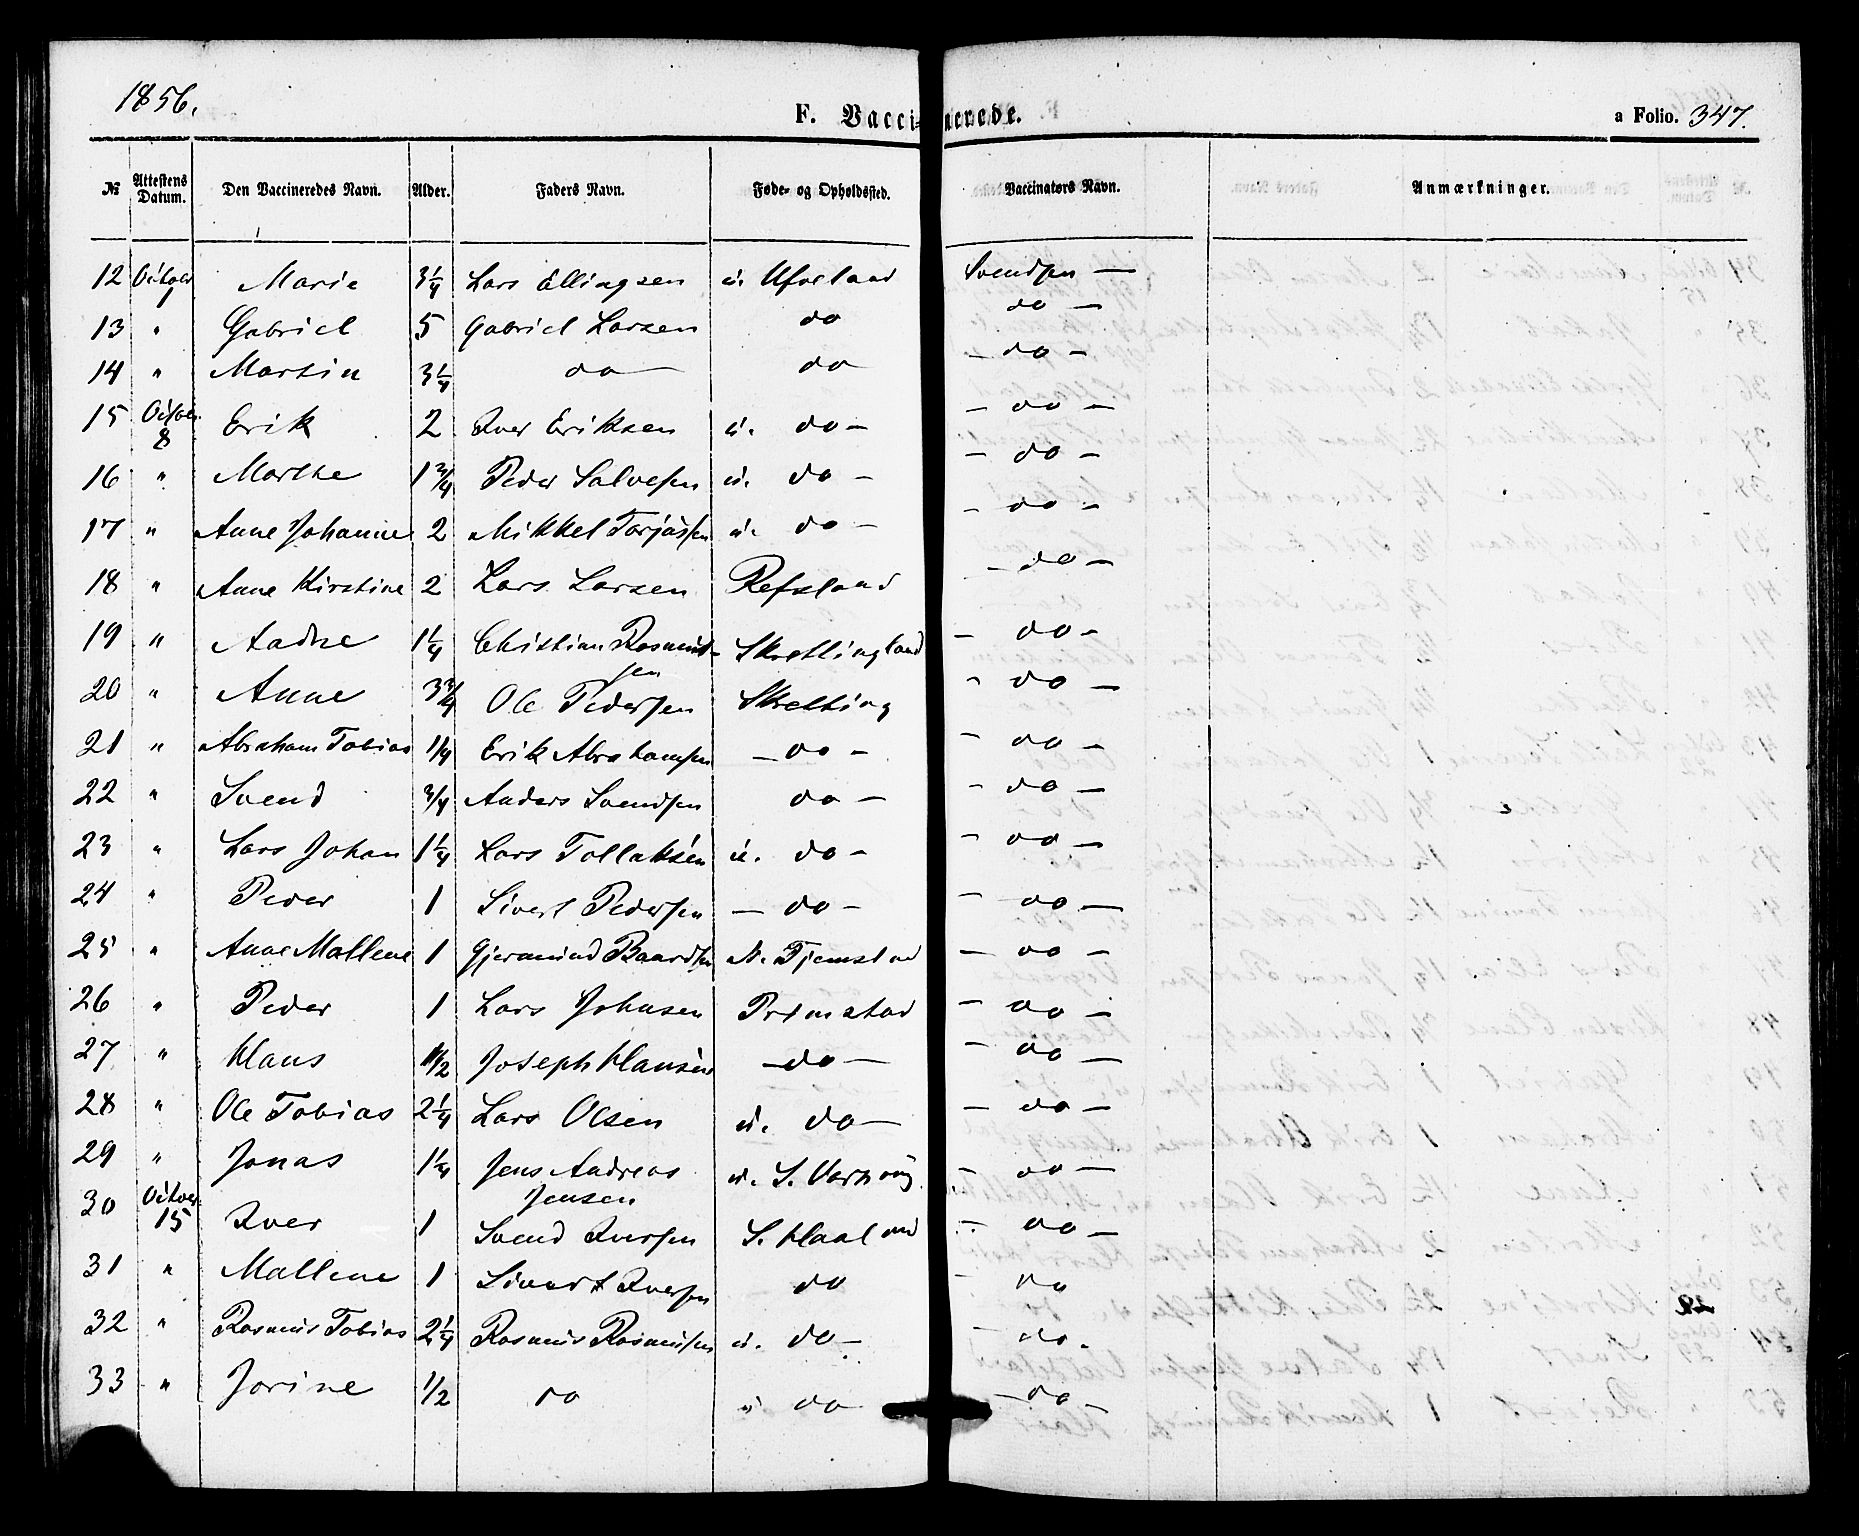 1856.
F. Vaccinerede.
a Folio. 347.
№ Attestens Datum. Den Vaccineredes Navn. Alder. Faders Navn. Føde- og Opholdssted. Vaccinators Navn. Anmærkninger.
12 October 1 Marie 3 1/4 Lars Ellingsen u. Ufseland Svendsen —
13 " Gabriel 5 Gabriel Larsen do do —
14 " Martin 3 1/4 do — do — do —
15 October 8 Erik 2 Iver Eriksen u. do — — do —
16 " Marthe 1 3/4 Peder Salvesen u. do — — do —
17 " Anne Johanne 2 Mikkel Torjussen u. do — — do —
18 " Anne Kirstine 2 Lars Larsen Refsland — do —
19 " Aadne 1 1/4 Christian Rasmus-
sen Skrettingland — do —
20 " Anne 3 3/4 Ole Pedersen Skretting — do —
21 " Abraham Tobias 1/4 Erik Abrahamsen — do — — do —
22 " Svend 3/4 Anders Svendsen do — — do —
23 " Lars Johan 1 1/4 Lars Tollaksen u. do — — do —
24 " Peder 1 Sivert Pedersen — do — — do —
25 " Anne Mallene 1 Gjermund Baardsen N. Tjemsland — do —
26 " Peder 1 Lars Johnsen Primstad — do —
27 " Klaus 1/2 Joseph Klausen — do — — do —
28 " Ole Tobias 2 1/4 Lars Olsen u. do — — do —
29 " Jonas 1 1/4 Jens Andreas
Jensen u. S. Varhoug — do —
30 October 15 Iver 1 Svend Iversen S. Haaland — do —
31 " Mallene 1 Sivert Iversen do — do
32 " Rasmus Tobias 2 1/4 Rasmus Rasmussen u. do — — do.
33 " Jorine 1/2 do " do — do —